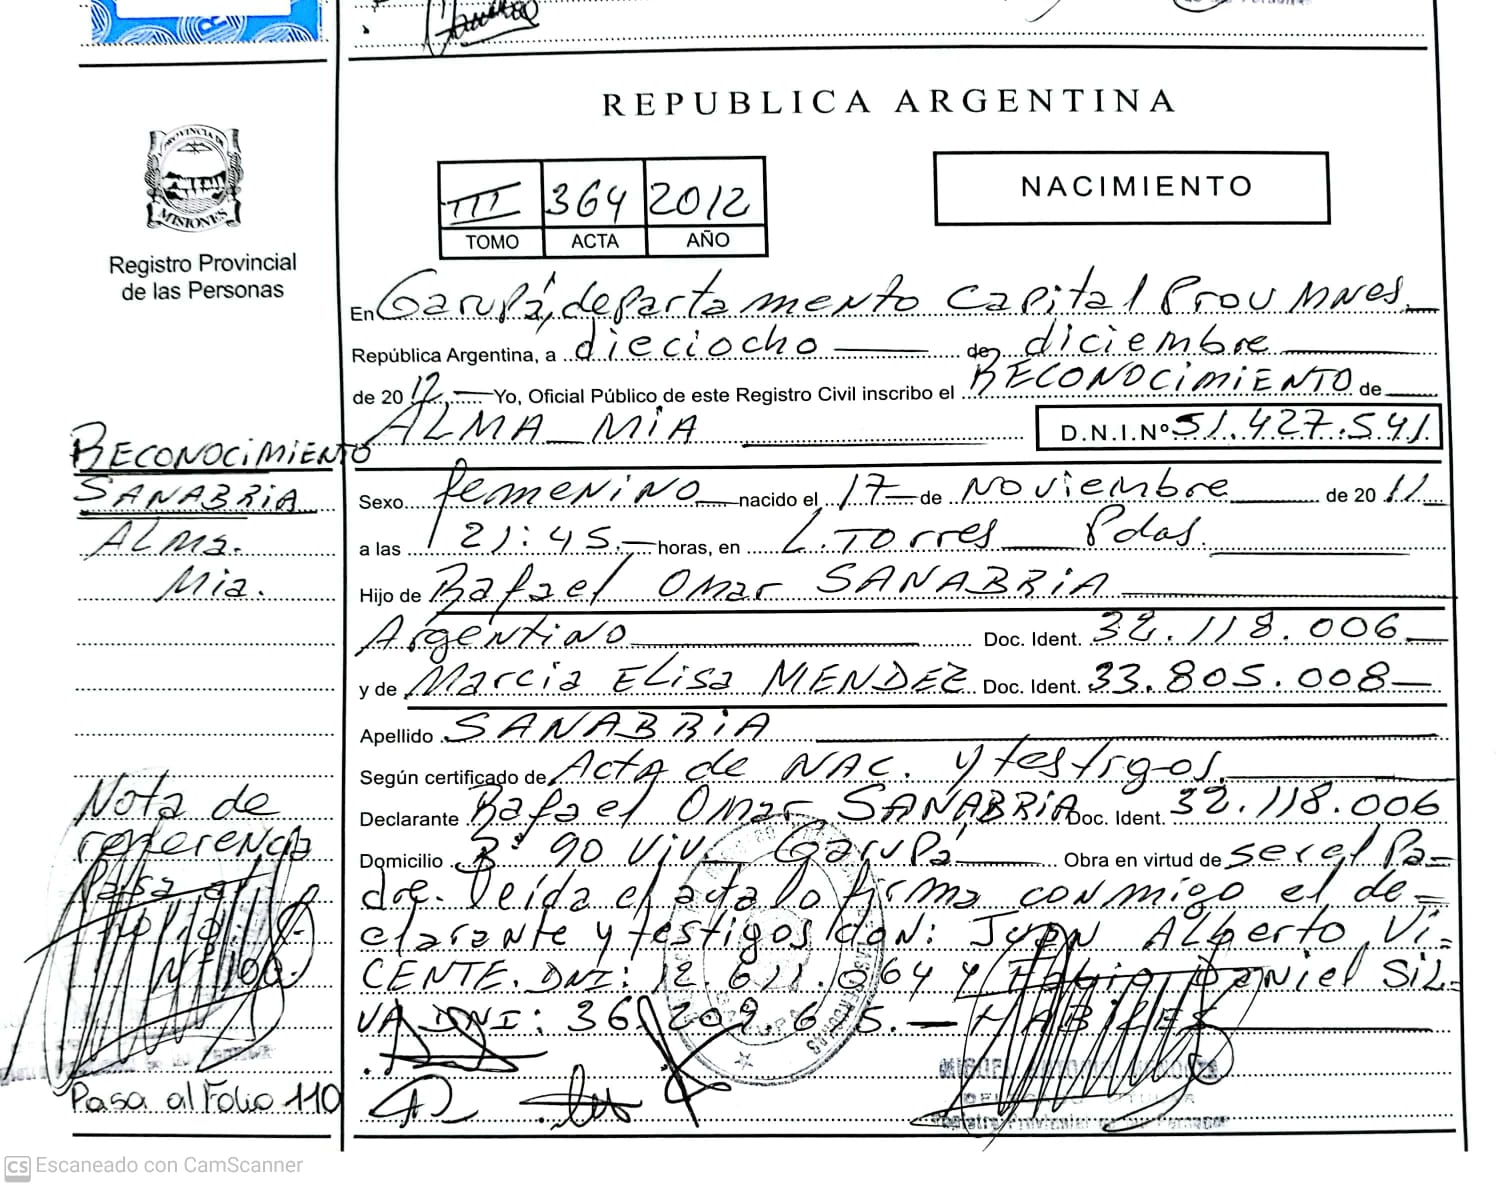 REPUBLICA ARGENTINA
PROVINCIA DE
MISIONES
Registro Provincial
de las Personas
III 364 2012
TOMO ACTA AÑO
NACIMIENTO
En Garupá, departamento Capital Prov Mnes.
República Argentina, a dieciocho de diciembre
de 2012 Yo, Oficial Público de este Registro Civil inscribo el RECONOCIMIENTO de
ALMA MIA D.N.I.Nº 51.427.541.
RECONOCIMIENTO
SANABRIA
ALMA.
Mia.
Sexo femenino nacido el 17 de Noviembre de 2011
a las 21:45.- horas, en L. Torres Pdas.
Hijo de Rafael Omar SANABRIA
Argentino Doc. Ident. 32.118.006
y de Marcia Elisa MENDEZ Doc. Ident. 33.805.008
Apellido SANABRIA
Según certificado de Acta de NAC. y testigos.
Declarante Rafael Omar SANABRIA Doc. Ident. 32.118.006
Domicilio Bº 90 Viv. Garupá Obra en virtud de ser el Pa=
dre. Leída el acta lo firma conmigo el de=
clarante y testigos don: Juan Alberto Vi=
CENTE. DNI: 12.611.064 y Fabio Daniel SIL=
VA DNI: 36.209.675.- HABILES
Nota de
referencia
Pasa al
folio
Pasa al Folio 110
CS Escaneado con CamScanner